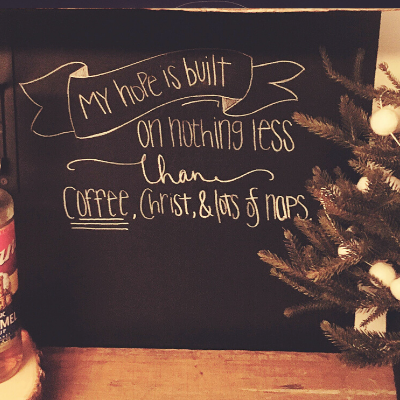 My hope is built
on nothing less
than
Coffee, Christ, & lots of naps.